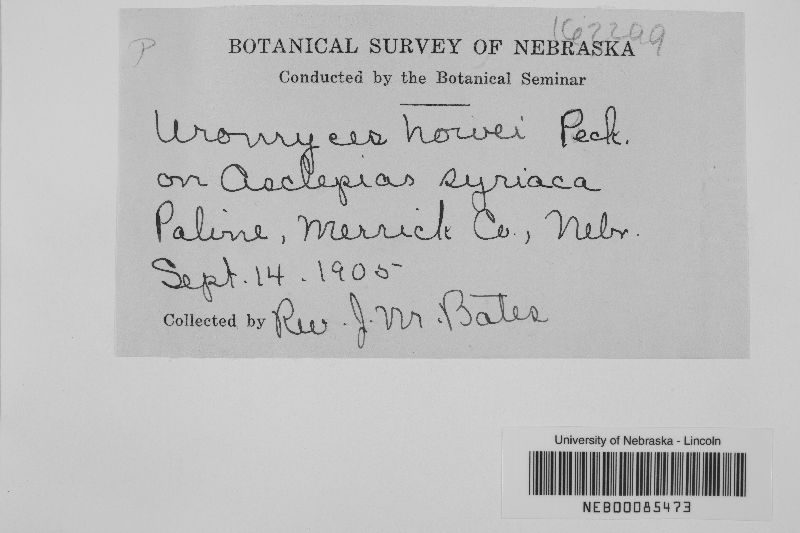 P
162299
BOTANICAL SURVEY OF NEBRASKA
Conducted by the Botanical Seminar
Uromyces howei Peck.
on Asclepias syriaca
Paline, Merrick Co., Nebr.
Sept. 14. 1905
Collected by Rev. J. M. Bates
University of Nebraska - Lincoln
NEB00085473